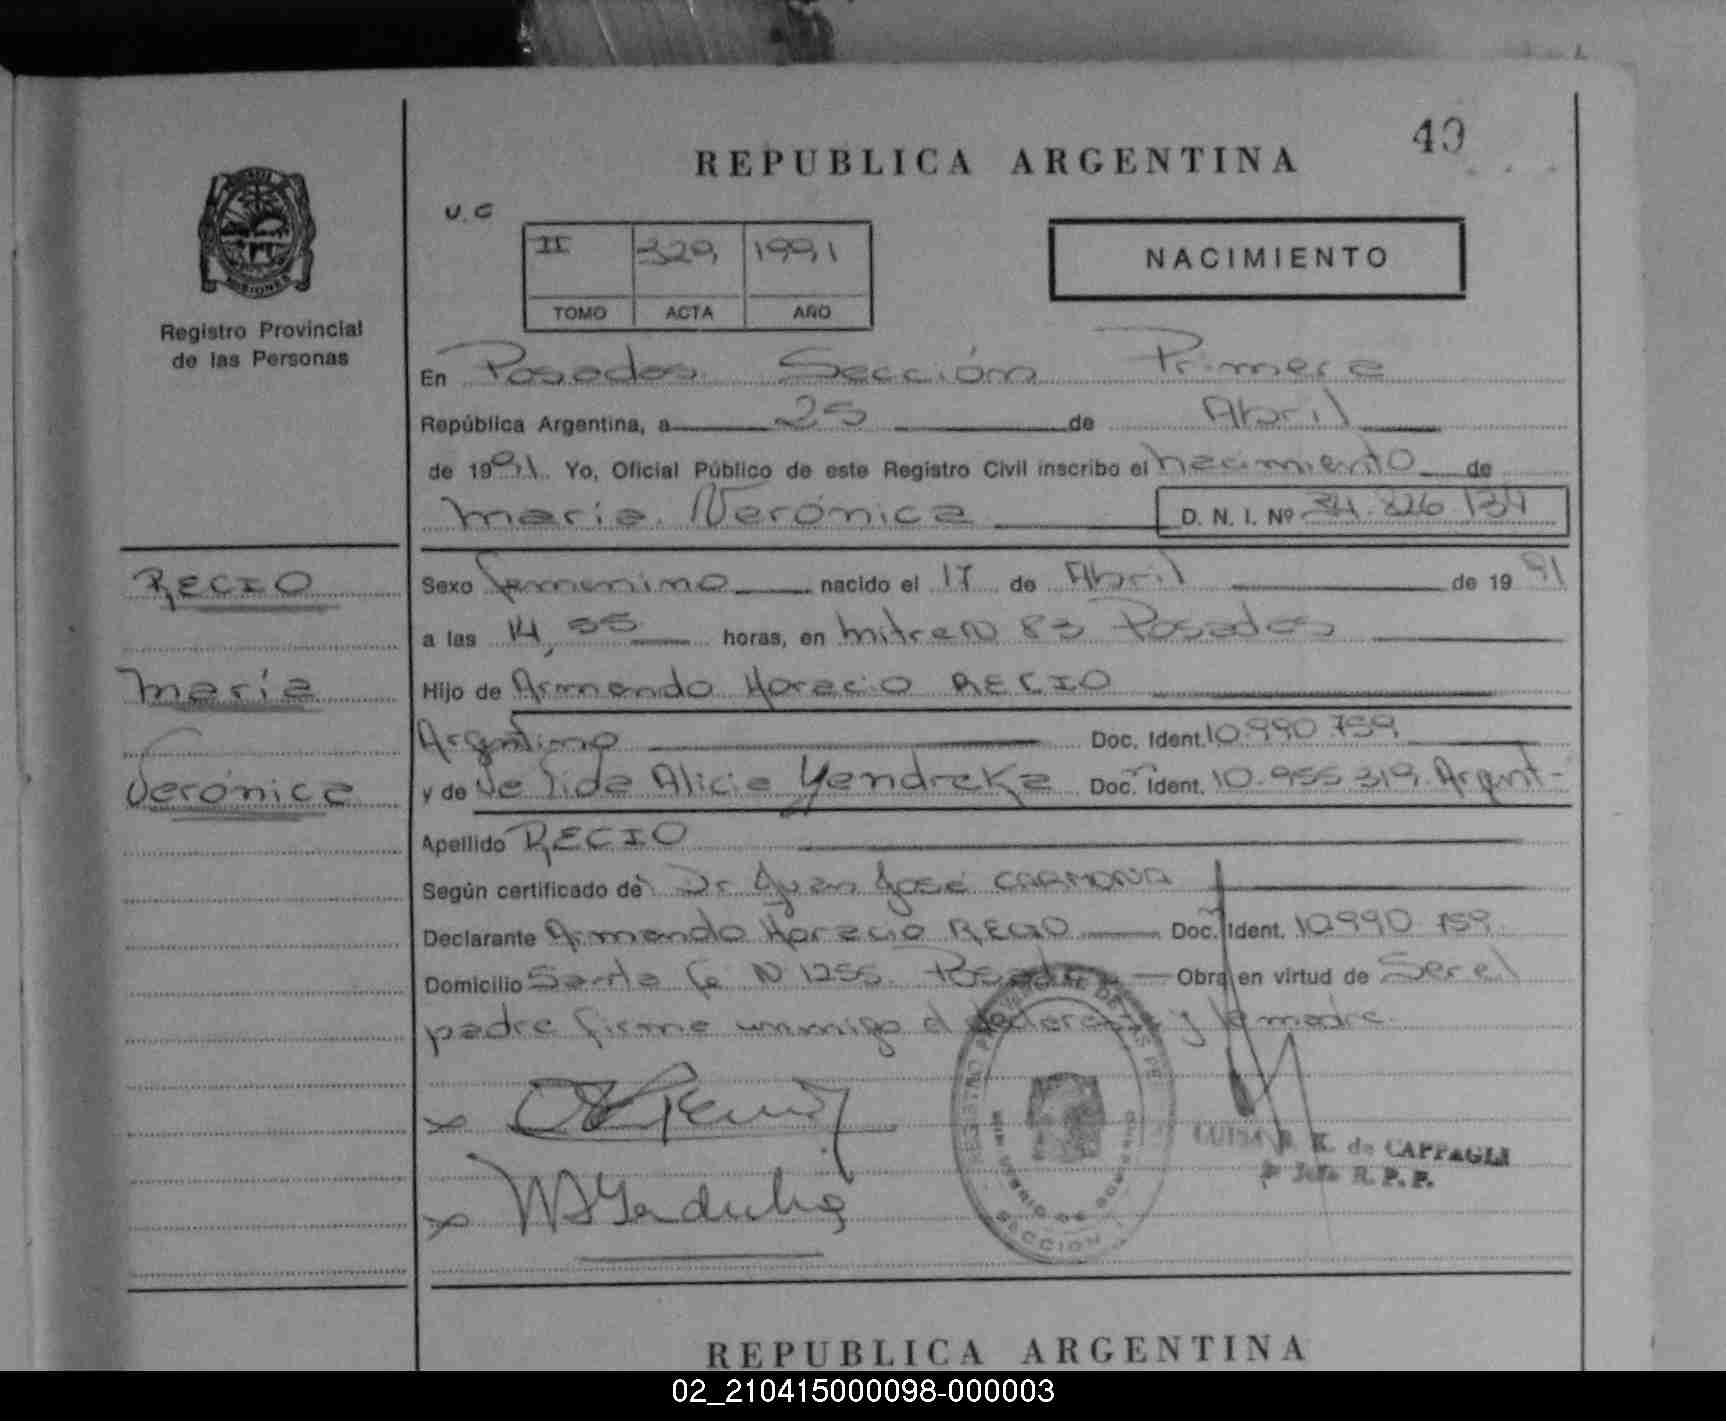 REPUBLICA ARGENTINA
49
U.C
II 329 1991
TOMO ACTA AÑO
NACIMIENTO
MISIONES
Registro Provincial
de las Personas
En Posadas Sección Primera
República Argentina, a 25 de Abril
de 1991 Yo, Oficial Público de este Registro Civil inscribo el nacimiento de
María Verónica D. N. I. Nº 34.826.134
RECIO
María
Verónica
Sexo femenino nacido el 17 de Abril de 1991
a las 14,55 horas, en Mitre N 83 Posadas
Hijo de Armando Horacio RECIO
Argentino Doc. Ident. 10.990.759
y de Nelida Alicia Yendreka Doc. Ident. 10.955.319, Argent-
Apellido RECIO
Según certificado de Dr Juan José CARMONA
Declarante Armando Horacio RECIO Doc. Ident. 10990.759
Domicilio Santa Fe N 1255. Posadas Obra en virtud de Ser el
padre firma conmigo el declarante y la madre.
REGISTRO PROVINCIAL DE LAS PE
SECCION 1
LUISA K. de CAPPAGLI
Jefe R. P. P.
REPUBLICA ARGENTINA
02_210415000098-000003